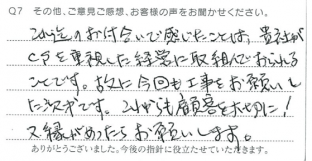 Q7 その他、ご意見ご感想、お客様の声をお聞かせください。
これ迄のお付合いで感じたことは、貴社が
CSを重視した経営に取組んでおられる
ことです。故に今回も工事をお願いし
た次第です。これからも顧客を大切に!
又縁があったらお願いします。
ありがとうございました。今後の指針に役立たせていただきます。